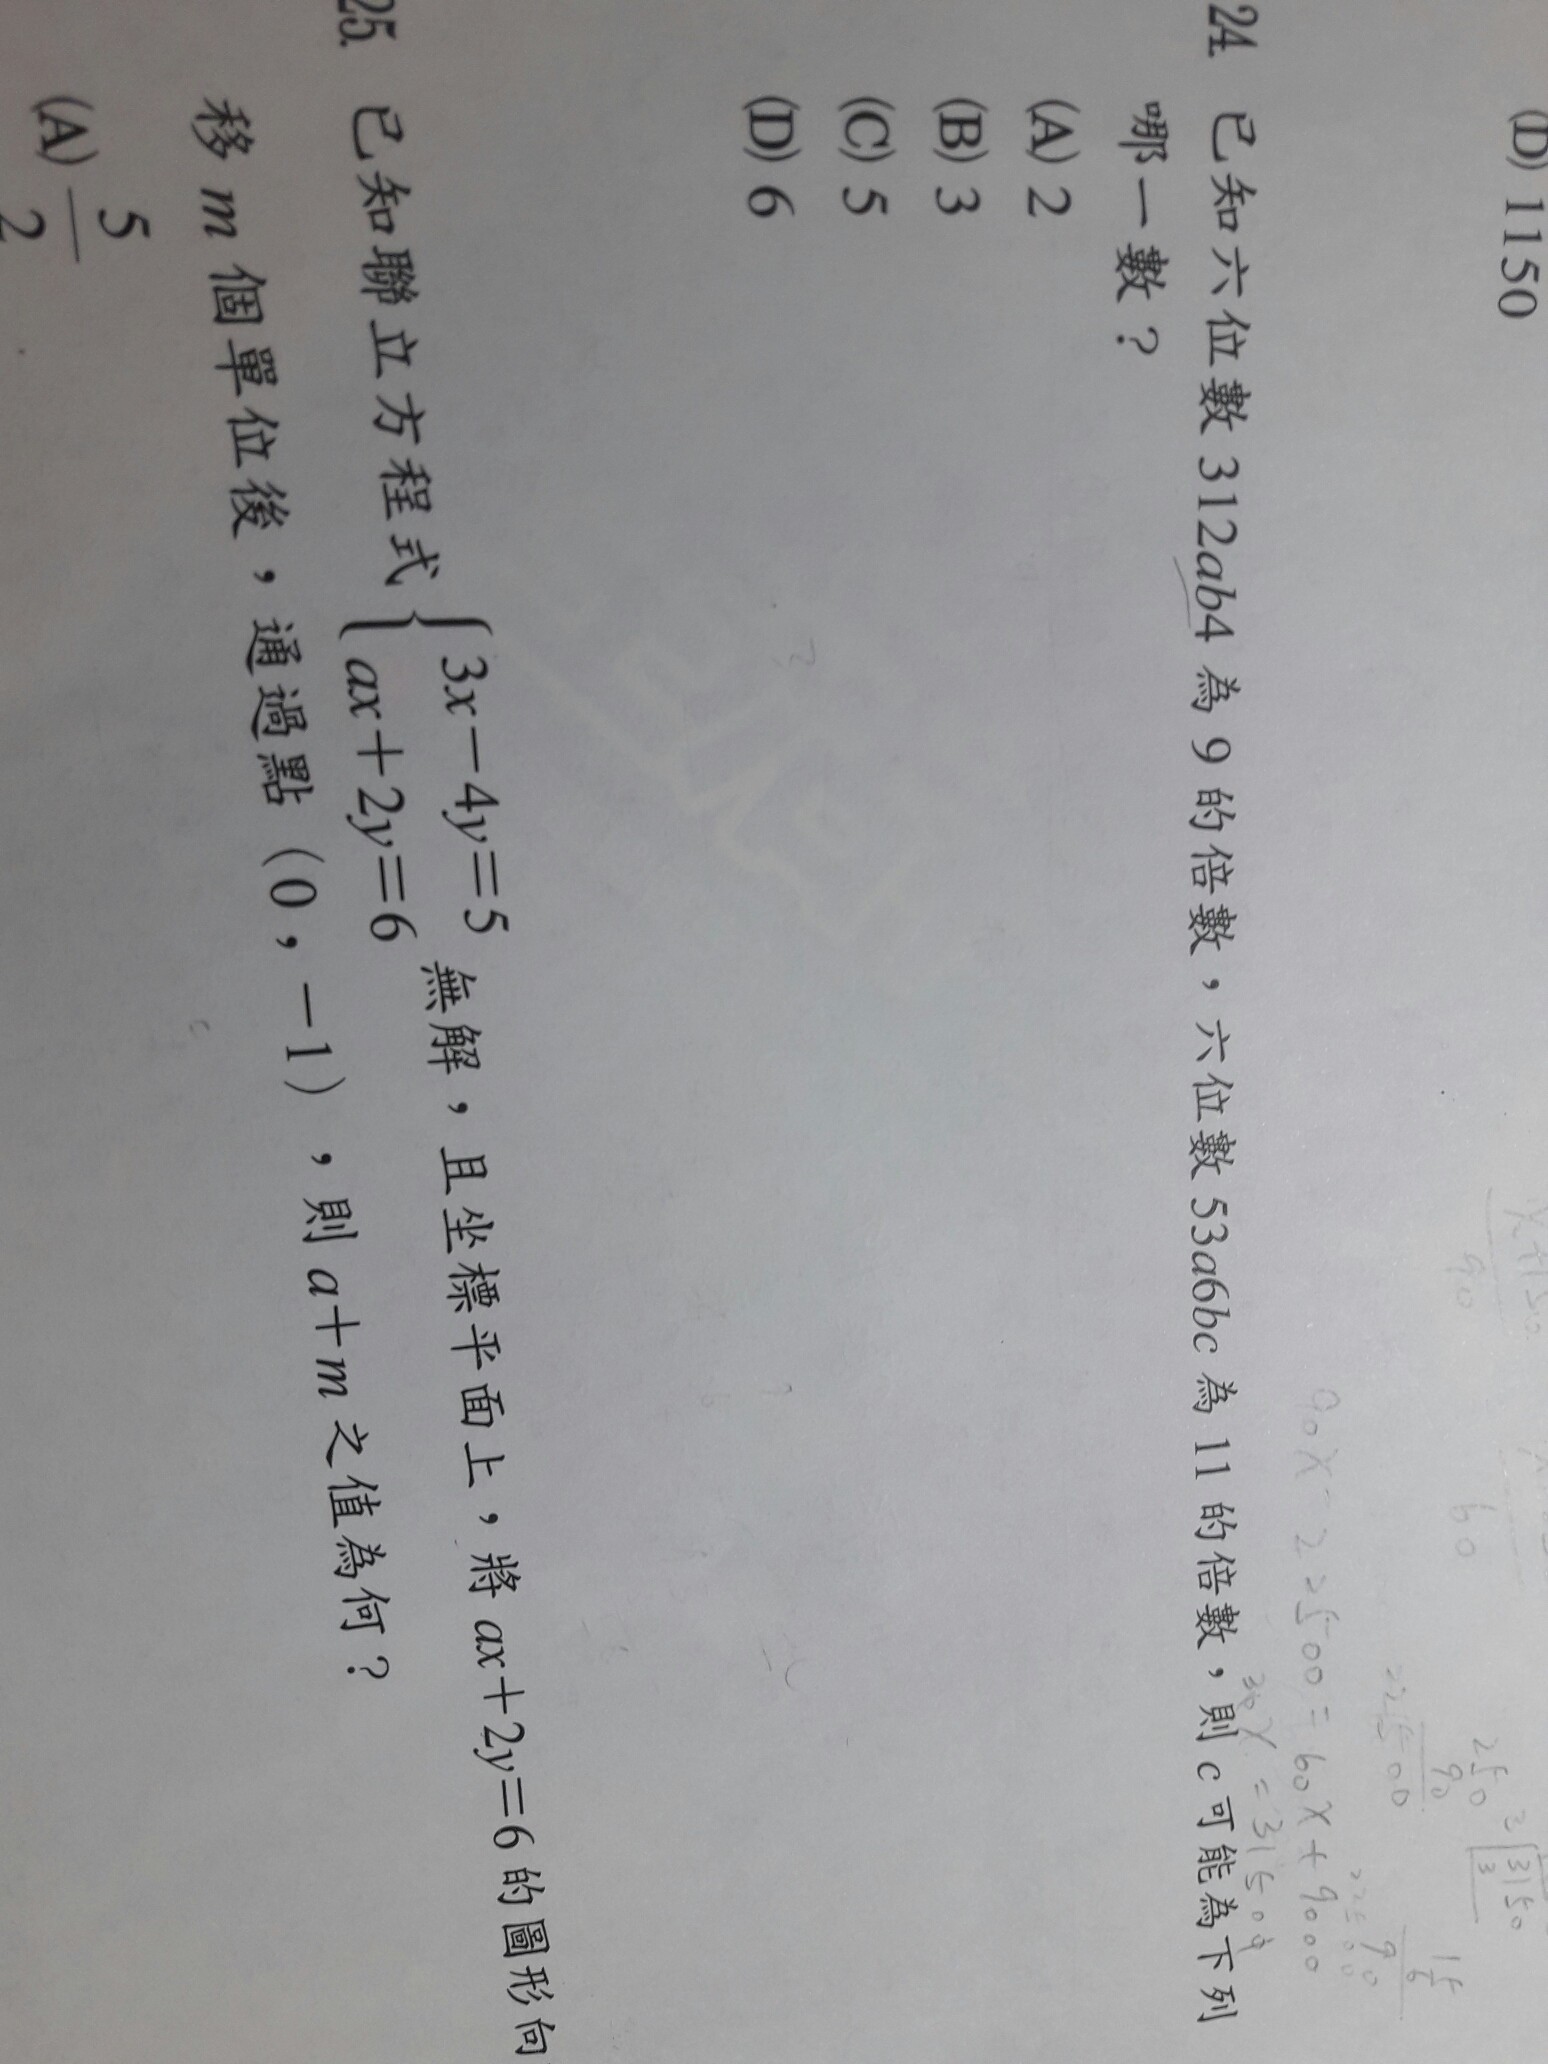 (D) 1150
24. 已知六位數312ab4為9的倍數，六位數53a6bc為11的倍數，則c可能為下列
哪一數？
(A) 2
(B) 3
(C) 5
(D) 6
25. 已知聯立方程式{3x－4y＝5
ax＋2y＝6 無解，且坐標平面上，將ax＋2y＝6的圖形向
移m個單位後，通過點（0，－1），則a＋m之值為何？
(A) 5/2
90x-22500=60x+9000
30x=31500